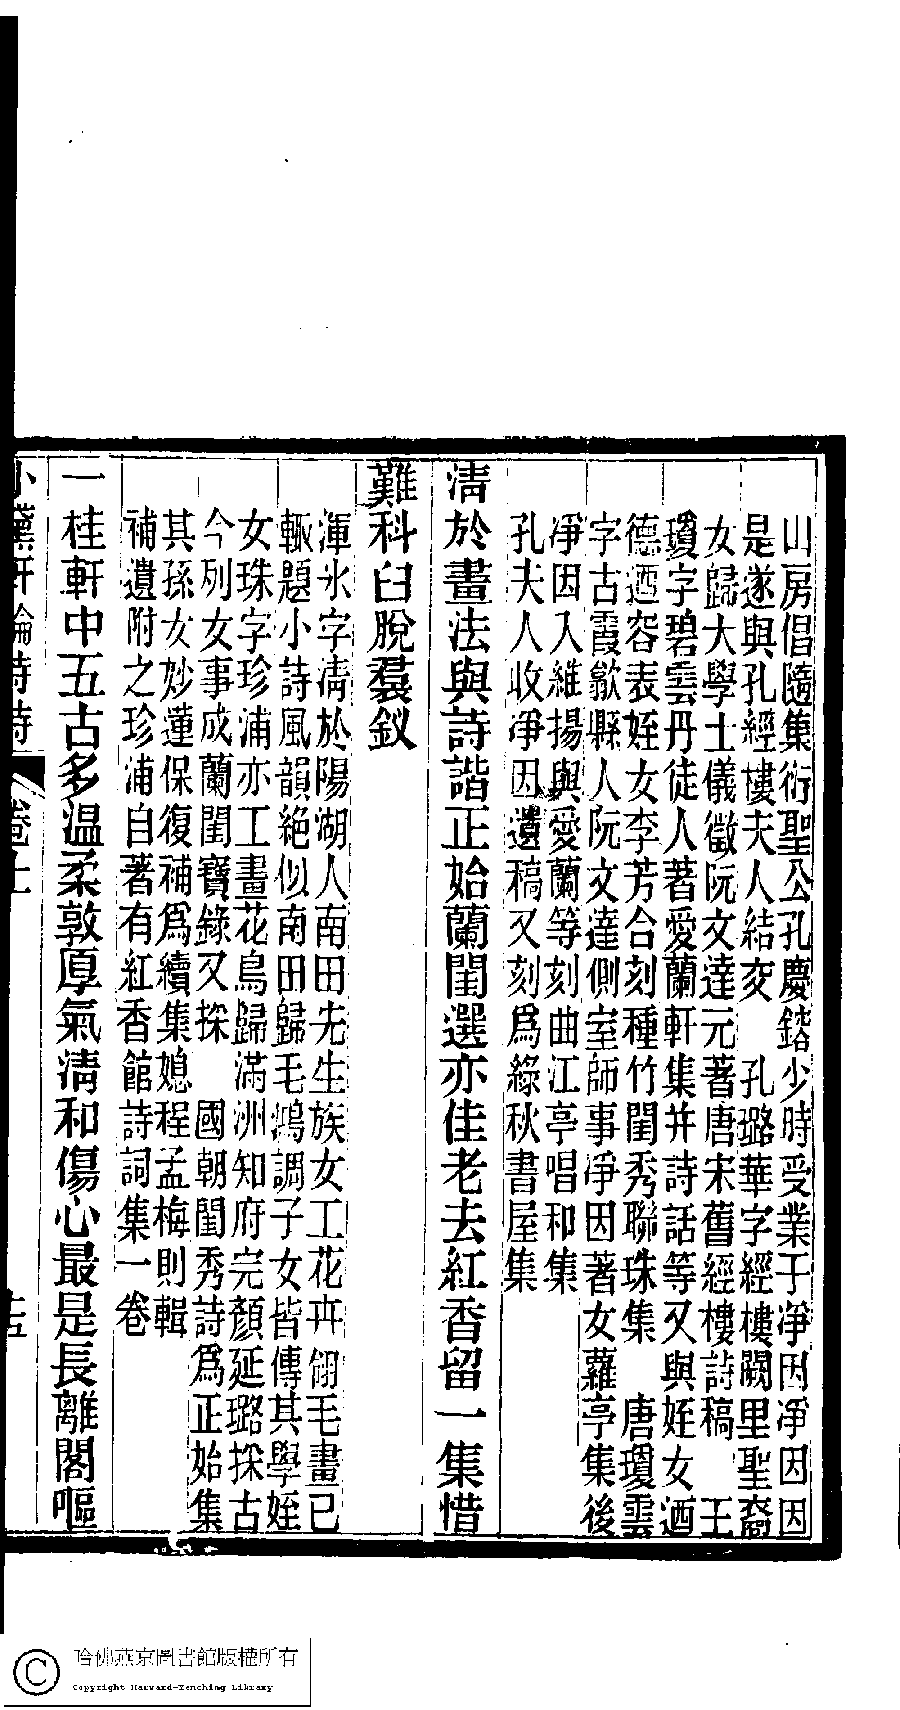 山房倡隨集衍聖公孔慶鎔少時受業于淨因淨因因
是遂與孔經樓夫人結交　孔璐華字經樓闕里聖裔
女歸大學士儀徵阮文達元著唐宋舊經樓詩稿　王
瓊字碧雲丹徒人著愛蘭軒集并詩話等又與姪女迺
德迺容表姪女李芳合刻種竹閨秀聯珠集　唐瓊雲
字古霞歙縣人阮文達側室師事淨因著女蘿亭集後
淨因入維揚與愛蘭等刻曲江亭唱和集
孔夫人收淨因遺稿又刻爲綠秋書屋集
清於畫法與詩諧正始蘭閨選亦佳老去紅香留一集惜
難科臼脫羣釵
渾氷字清於陽湖人南田先生族女工花卉翎毛畫已
輒題小詩風韻絕似南田歸毛鴻調子女皆傳其學姪
女珠字珍浦亦工畫花鳥歸滿洲知府完顏延璐採古
今列女事成蘭閨寶錄又採　國朝閨秀詩爲正始集
其孫女妙蓮保復補爲續集媳程孟梅則輯
補遺附之珍浦自著有紅香館詩詞集一卷
一桂軒中五古多温柔敦厚氣清和傷心最是長離閣嘔
小黛軒論詩詩　卷上
哈佛燕京圖書館版權所有
Copyright Harvard-Yenching Library